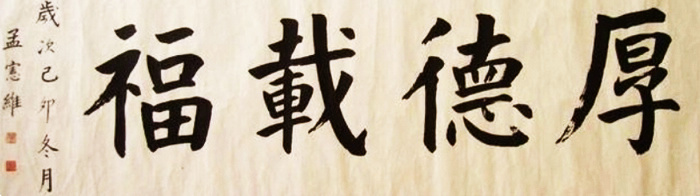 厚德載福
歲次己卯冬月
孟憲維